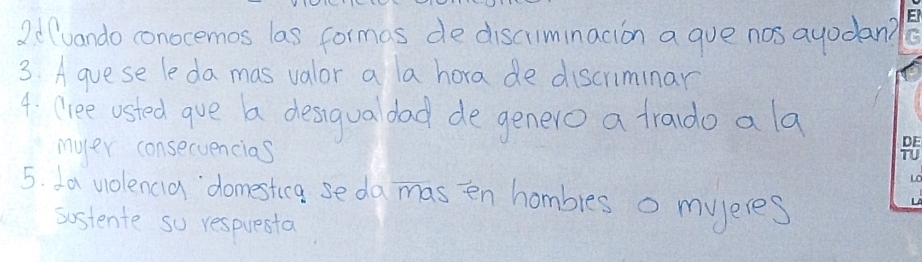 2¿Cuando conocemos las formas de discriminación a que nos ayudan?
3. A que se le da mas valor a la hora de discriminar
4. Cree usted que la desigualdad de genero a traido a la
mujer consecuencias
5. La violencia domestica se da mas en hombres o mujeres
Sustente su respuesta
DE
TU